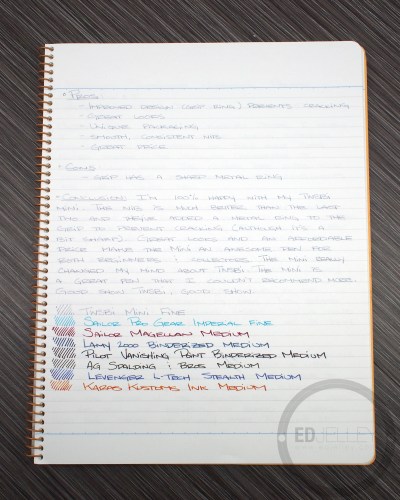 • Pros:
- Improved design (grip ring) prevents cracking
- Great looks
- Unique packaging
- Smooth, consistent nib
- Great price
• Cons:
- Grip has a sharp metal ring
• Conclusion: I'm 100% happy with my TWSBI
Mini. The nib is much better than the last
two and they've added a metal ring to the
grip to prevent cracking (although it's a
bit sharp). Great looks and an affordable
price make the Mini an awesome pen for
both beginners + collectors. The Mini really
changed my mind about TWSBI. The Mini is
a great pen that I couldn't recommend more.
Good show TWSBI, good show.
TWSBI Mini Fine
Sailor Pro Gear Imperial Fine
Sailor Magellan Medium
Lamy 2000 Binderized Medium
Pilot Vanishing Point Binderized Medium
AG Spalding + Bros Medium
Levenger L-Tech Stealth Medium
Karas Kustoms Ink Medium
ED JELLEY